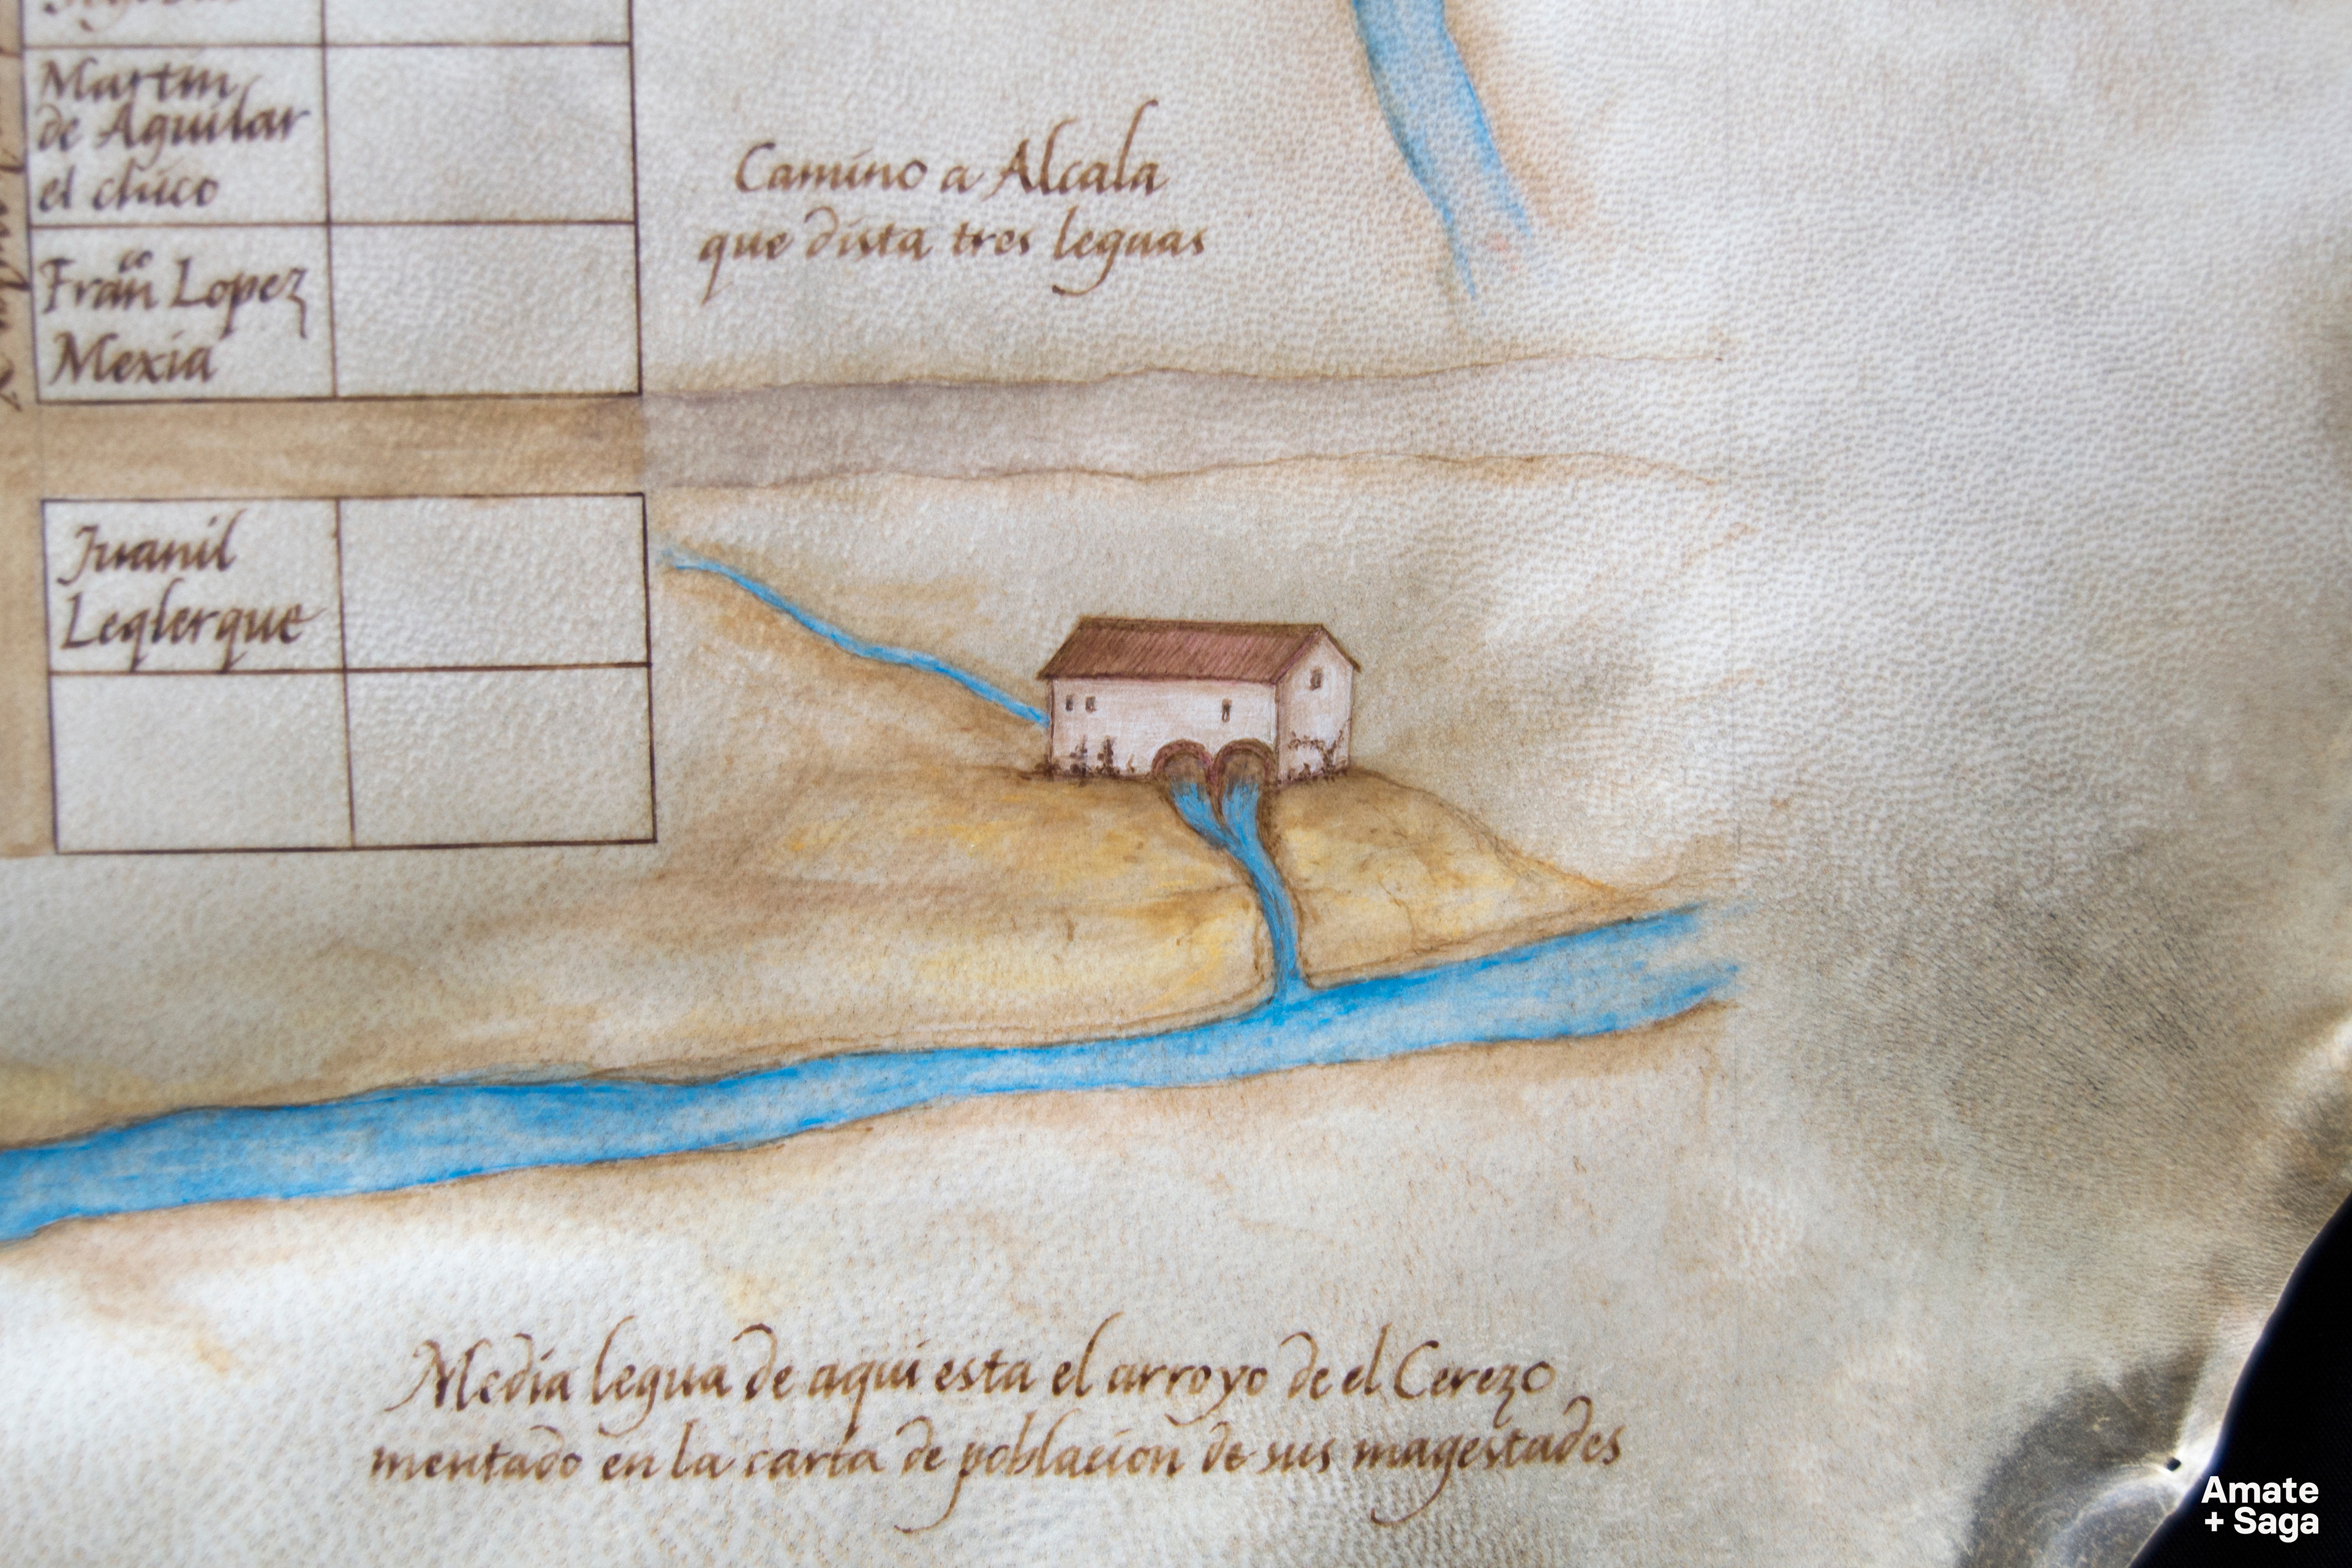 Martin
de Aguilar
el chico
Fran͠co Lopez
Mexia
Camino a Alcala
que dista tres leguas
Juanil
Leqlerque
Media legua de aqui esta el arroyo de el Cerezo
mentado en la carta de poblacion de sus magestades
Amate
+ Saga